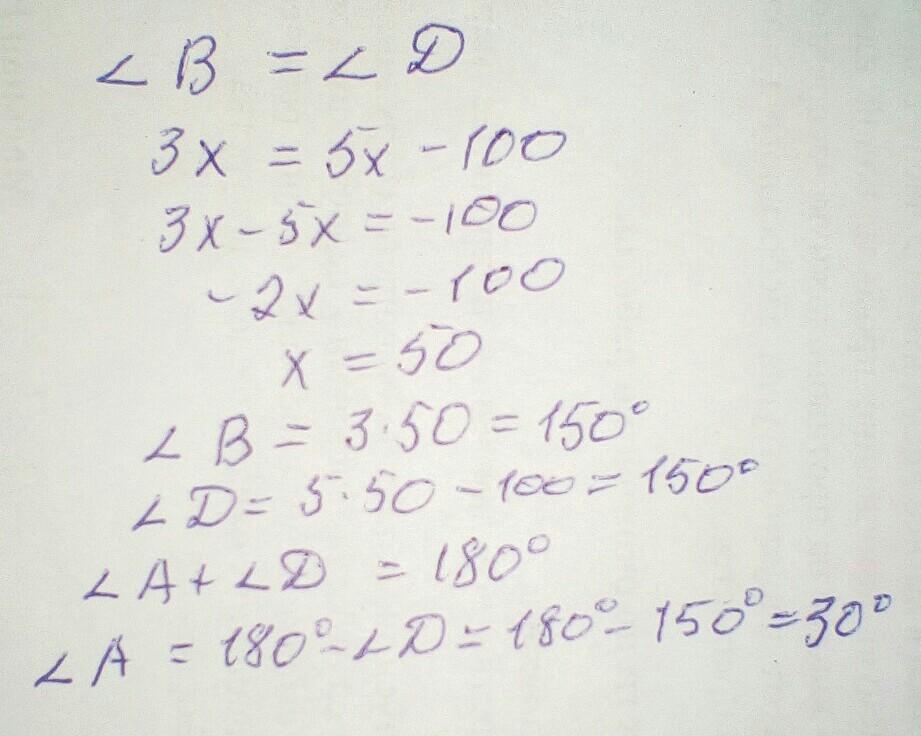 ∠B = ∠D
3x = 5x - 100
3x - 5x = -100
-2x = -100
x = 50
∠B = 3·50 = 150°
∠D = 5·50 - 100 = 150°
∠A + ∠D = 180°
∠A = 180° - ∠D = 180° - 150° = 30°